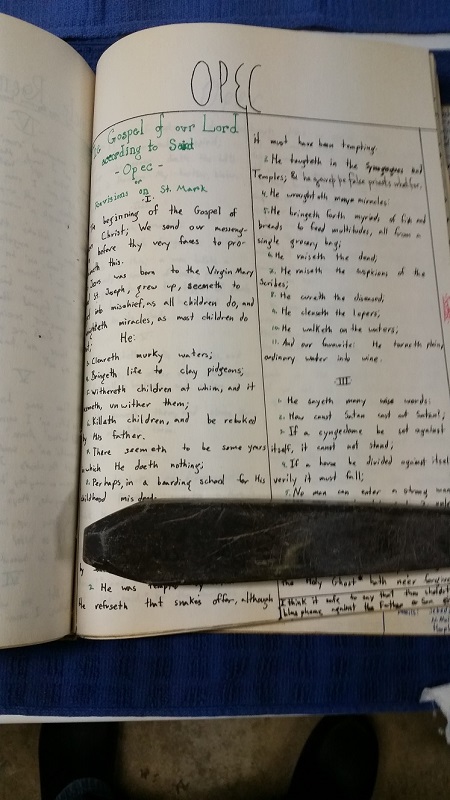 OPEC
Gospel of our Lord
according to Saint
- Opec -
or
Revisions on St. Mark
-I-
beginning of the Gospel of
Christ; We send our messeng-
before thy very faces to pro-
this.
was born to the Virgin Mary
St. Joseph, grew up, seemeth to
into mischief, as all children do, and
miracles, as most children do
He:
Cleareth murky waters;
Bringeth life to clay pidgeons;
Withereth children at whim, and it
unwither them;
Killeth children, and be rebuked
by His father.
There seemeth to be some years
in which He doeth nothing;
Perhaps, in a boarding school for His
childhood
by
2. He was
He refuseth that snakes offer, although
it must have been tempting.
3. He taugheth in the Synagogues and
Temples; & he gaveth ye false priests what for.
4. He wraughteth many miracles:
5. He bringeth forth myriads of fish and
breads to feed multitudes, all from a
single grocery bag;
6. He raiseth the dead;
7. He raiseth the suspicions of the
Scribes;
8. He cureth the diseased;
9. He cleaneth the lepers;
10. He walketh on the waters;
11. And our favourite: He turneth plain,
ordinary water into wine.
III
1. He sayeth many wise words:
2. How canst Satan cast out Satan?;
3. If a cyngedome be set against
itself, it canst not stand;
4. If a house be divided against itself
verily it must fall;
5. No man can enter a strong man
the Holy Ghost hath never
I think it safe to say that thou shouldst
blaspheme against the Father or Son